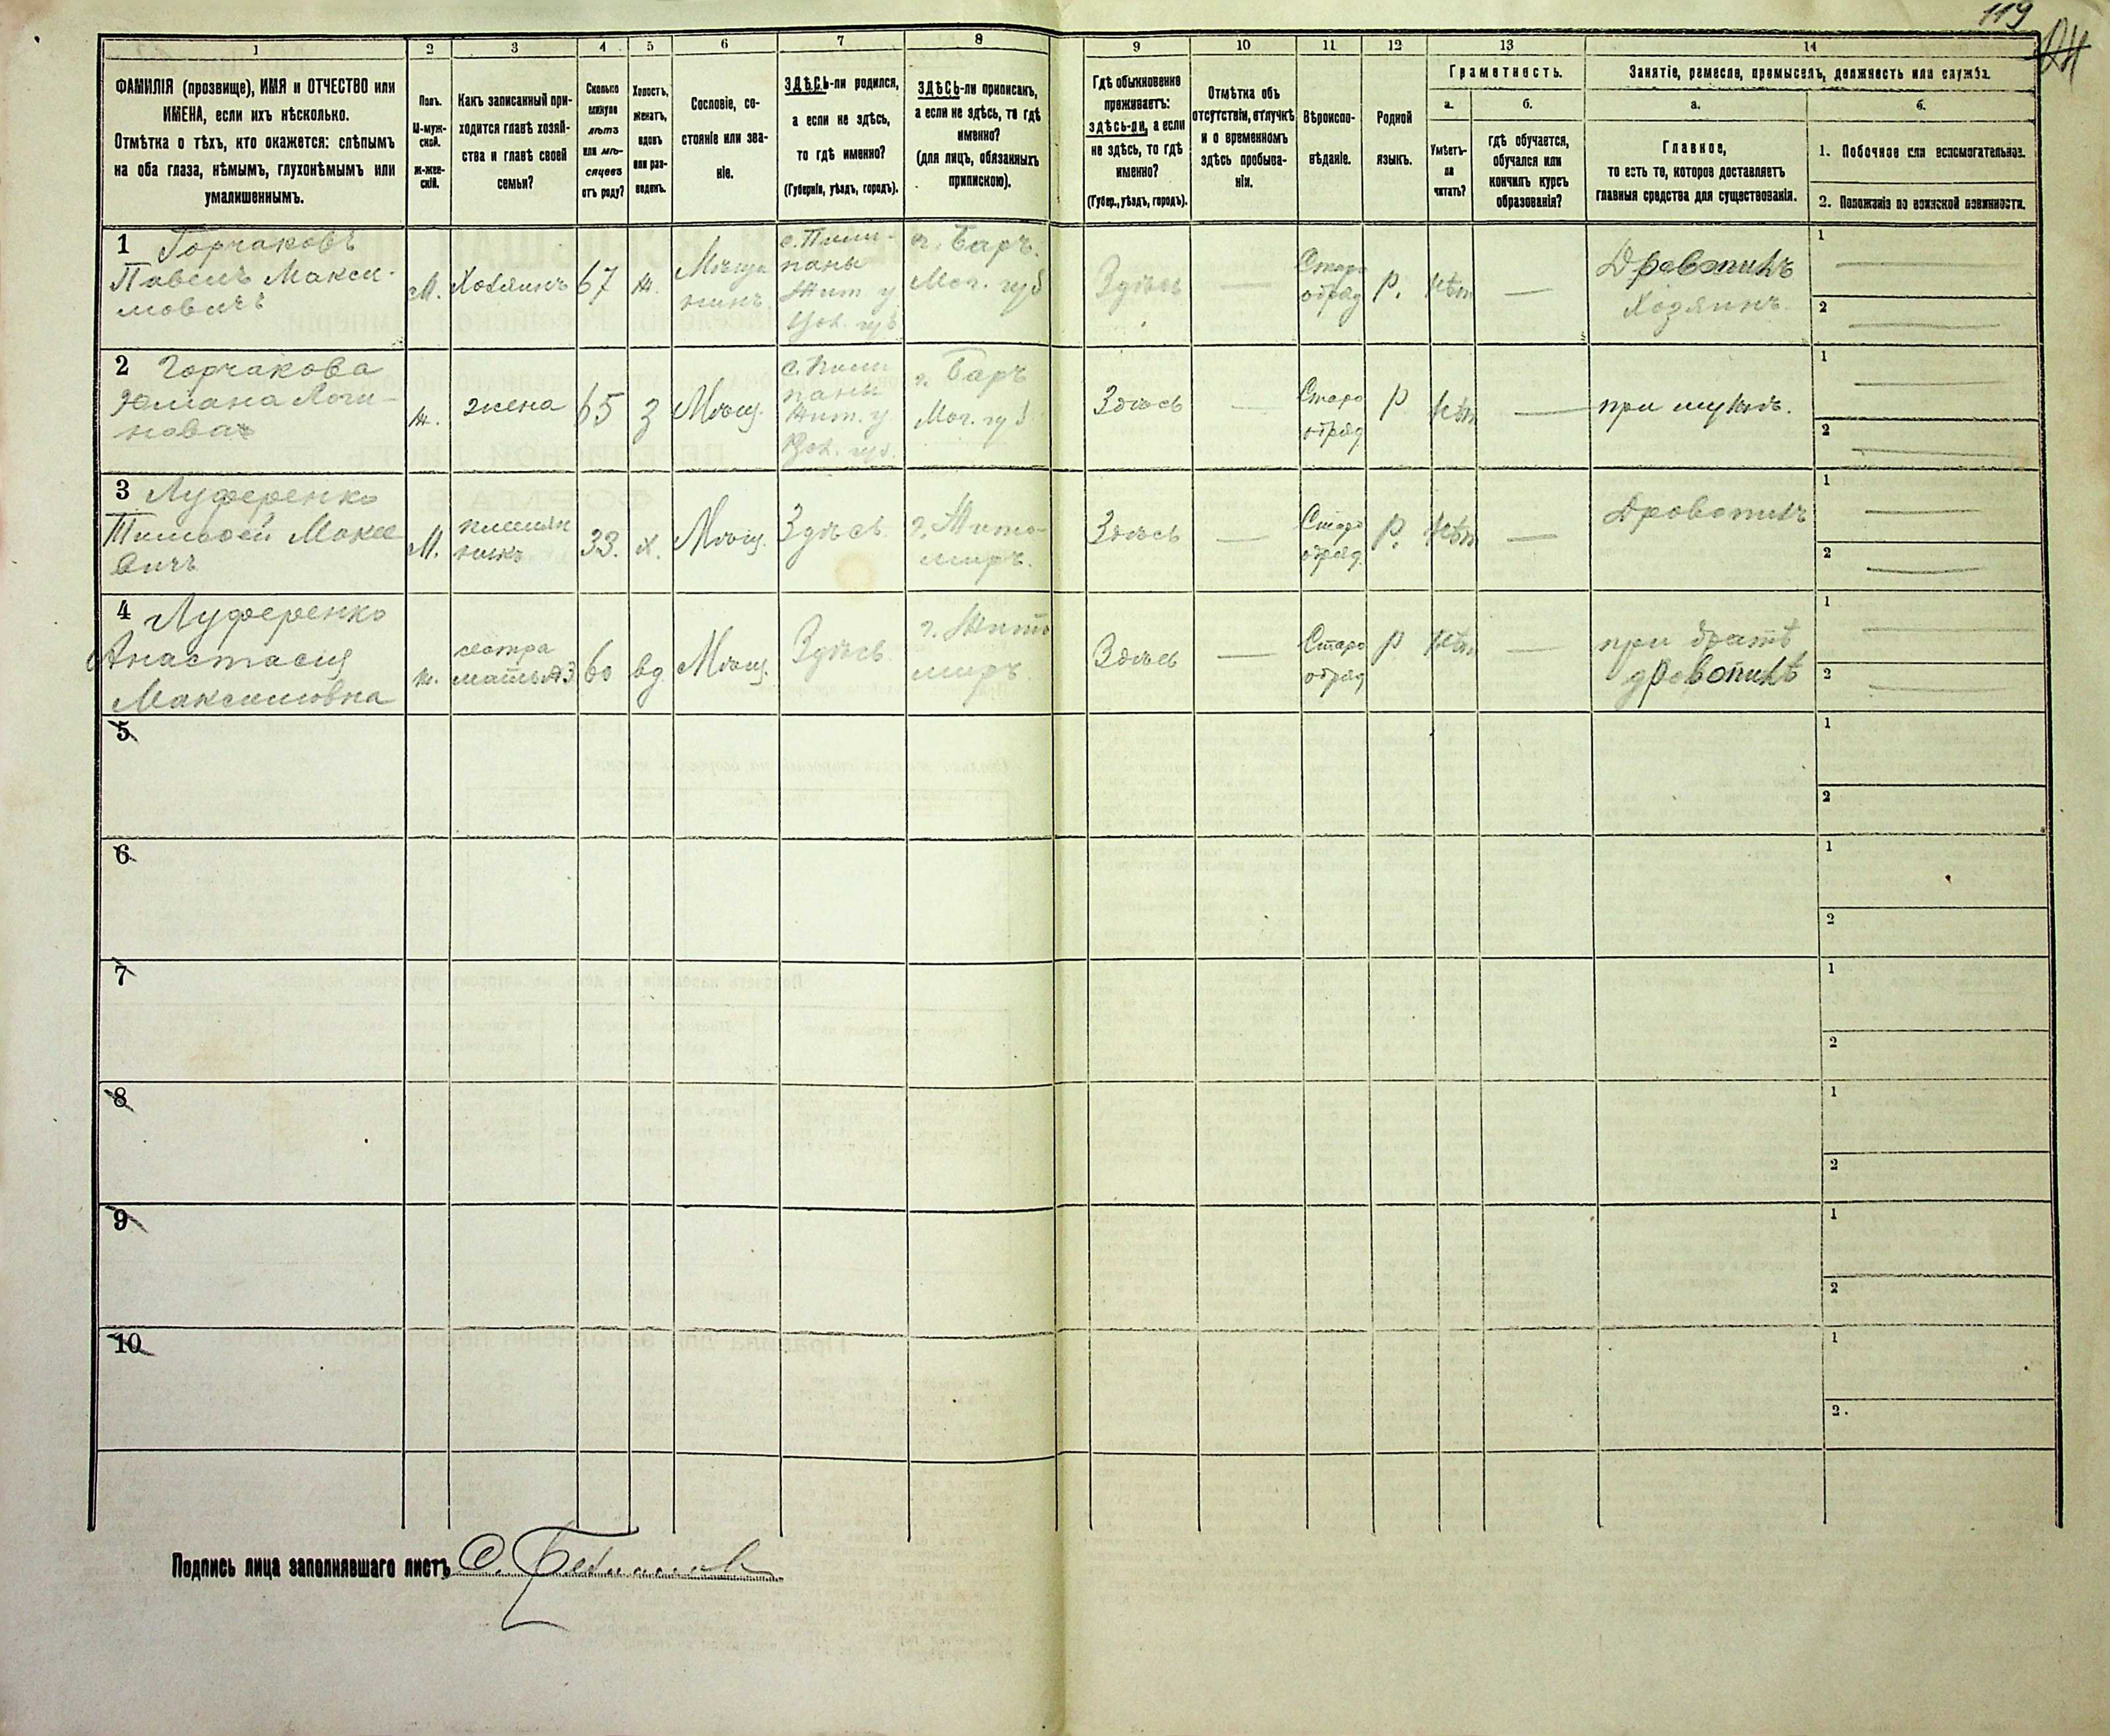 119
1 2 3 4 5 6 7 8 9 10 11 12 13 14
ФАМИЛІЯ (прозвище), ИМЯ и ОТЧЕСТВО или
ИМЕНА, если ихъ нѣсколько.
Отмѣтка о тѣхъ, кто окажется: слѣпымъ
на оба глаза, нѣмымъ, глухонѣмымъ или
умалишеннымъ.
Полъ.
М-муж-
ской.
ж-жен-
скій.
Какъ записанный при-
ходится главѣ хозяй-
ства и главѣ своей
семьи?
Сколько
минуло
лѣтъ
или мѣ-
сяцевъ
отъ роду?
Холостъ,
женатъ,
вдовъ
или раз-
веденъ.
Сословіе, со-
стояніе или зва-
ніе.
ЗДѢСЬ-ли родился,
а если не здѣсь,
то гдѣ именно?
(Губернія, уѣздъ, городъ).
ЗДѢСЬ-ли приписанъ,
а если не здѣсь, то гдѣ
именно?
(для лицъ, обязанныхъ
припискою).
Гдѣ обыкновенно
проживаетъ:
здѣсь-ли, а если
не здѣсь, то гдѣ
именно?
(Губер., уѣздъ, городъ).
Отмѣтка объ
отсутствіи, отлучкѣ
и о временномъ
здѣсь пребыва-
ніи.
Вѣроиспо-
вѣданіе.
Родной
языкъ.
Грамотность.
а.
Умѣетъ-
ли
читать?
б.
гдѣ обучается,
обучался или
кончилъ курсъ
образованія?
Занятіе, ремесло, промыселъ, должность или служба.
а.
Главное,
то есть то, которое доставляетъ
главныя средства для существованія.
б.
1. Побочное или вспомогательное.
2. Положеніе по воинской повинности.
1 Горчаковъ
Павелъ Макси-
мовичъ
М.
Хозяинъ
67
ж.
Мѣща
нинъ
с. Пили-
поны
Жит. у
Вол. губ
г. Баръ.
Мог. губ
Здѣсь
—
Старо
обряд
р.
нѣт
—
Дровопилъ
Хозяинъ
1 —
2 —
2 Горчакова
Логи-
нова
ж.
жена
65
З
Мѣщ.
с. Пили
поны
Жит. у
Вол. губ.
г. Баръ
Мог. губ
Здѣсь
—
Старо
обряд
р
нѣт
—
при мужѣ.
1 —
2 —
3 Луференко
Тимофей Моксе
вичъ
М.
племян
никъ
33.
х.
Мѣщ.
Здѣсь
г. Жито-
миръ.
Здѣсь
—
Старо
обряд.
р.
нѣт
—
Дровопилъ
1 —
2 —
4 Луференко
Анастасия
Максимовна
ж.
сестра
мать №3
60
вд
Мѣщ.
Здѣсь
г. Жито
миръ.
Здѣсь
—
Старо
обряд
р
нѣт
—
при братѣ
дровопилѣ
1 —
2 —
5
1
2
6
1
2
7
1
2
8
1
2
9
1
2
10
1
2.
Подпись лица заполнявшаго листъ